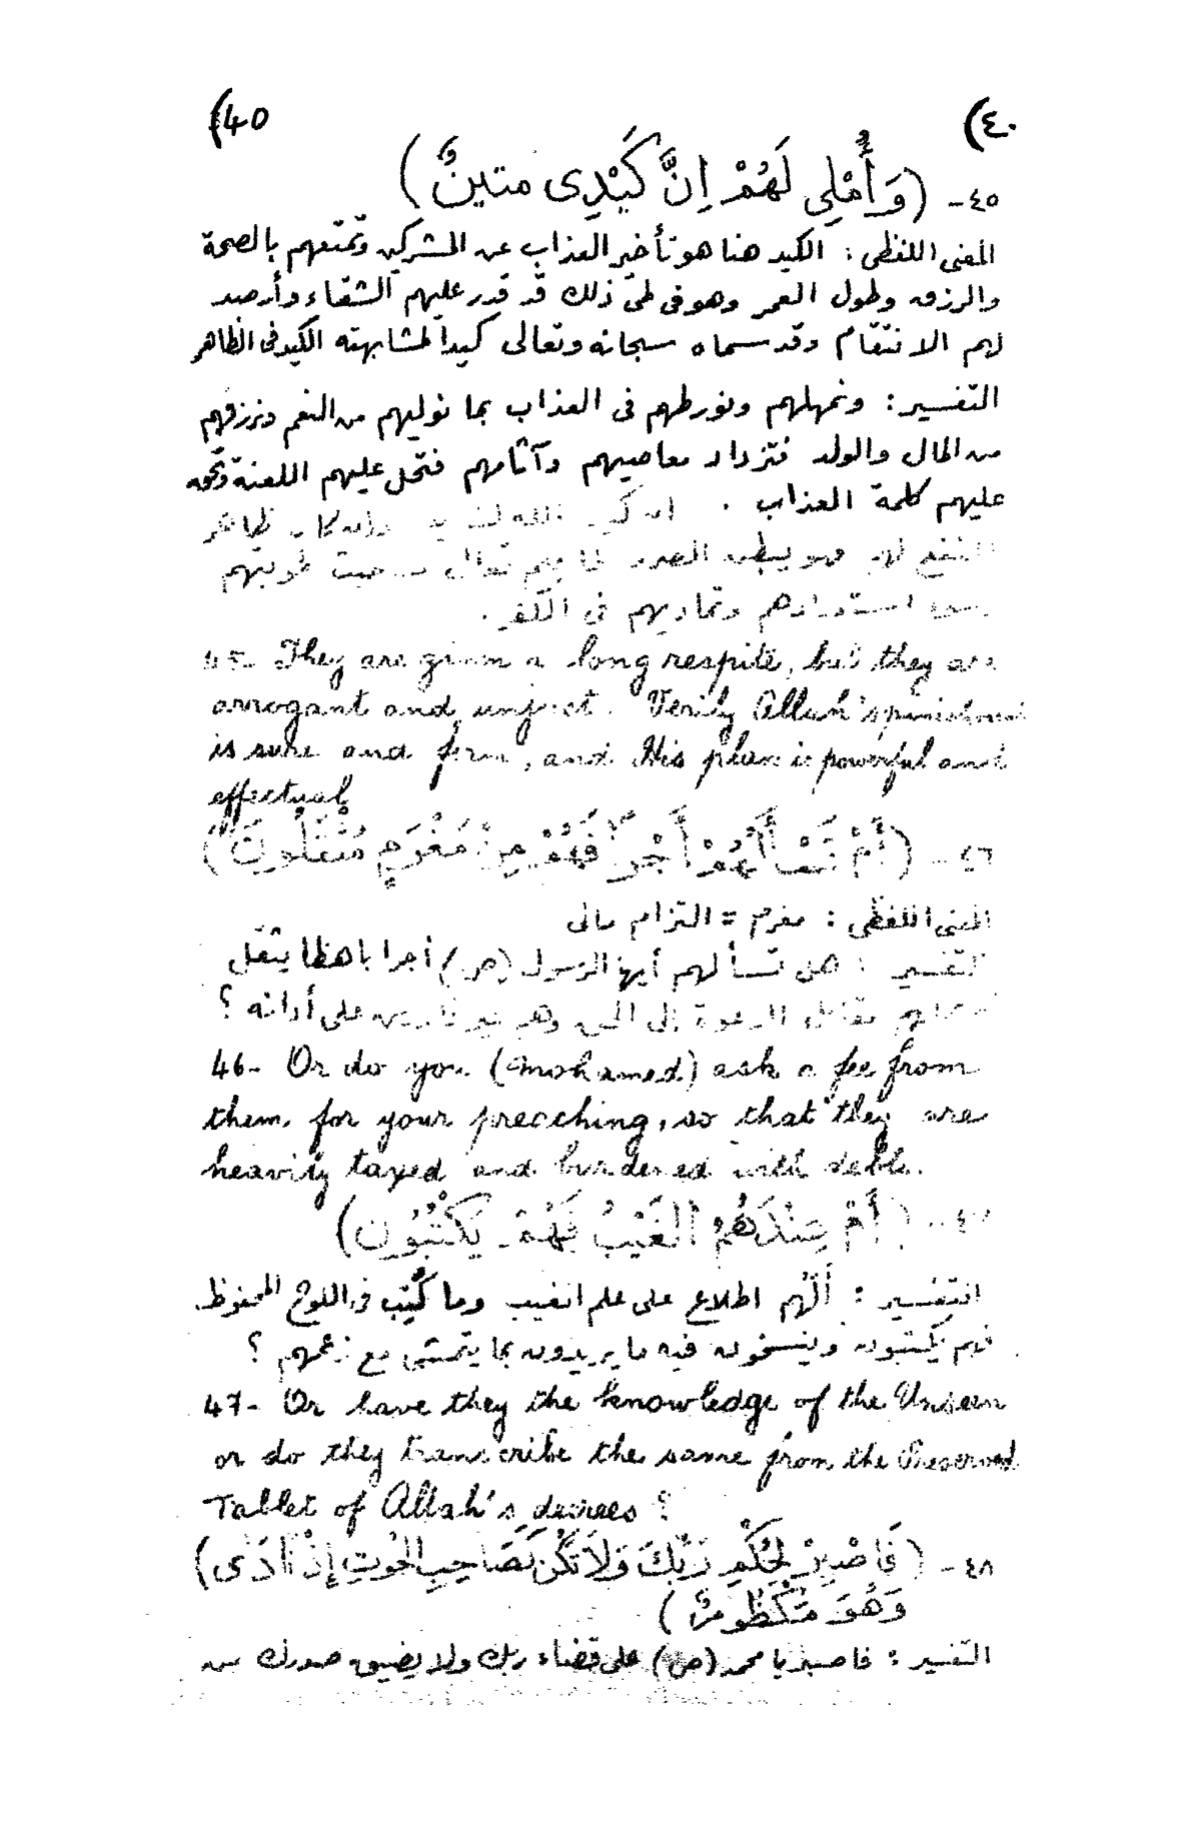 (40
(٤٠
٤٥- (وَأُمْلِي لَهُمْ إِنَّ كَيْدِى متينٌ)
المعنى اللفظى : الكيد هنا هو تأخير العذاب عن المشركين وتمتعهم بالصحة
والرزق وطول العمر وهو فى طى ذلك قد قدر عليهم الشقاء وأرصد
لهم الانتقام وقد سماه سبحانه وتعالى كيدا لمشابهته الكيد فى الظاهر
التفسير : ونمهلهم ونورطهم فى العذاب بما نوليهم من النعم ونرزقهم
من المال والولد فتزداد معاصيهم وآثامهم فتحل عليهم اللعنة وتحق
عليهم كلمة العذاب . ان كيد الله لشديد وان كان ظاهر
النفع لهم فهو يبطن الضرر لما يعلم تعالى من خبث طويتهم
وسوء استعدادهم وتماديهم فى الكفر .
45- They are given a long respite, but they are
arrogant and unjust. Verily Allah's punishment
is sure and firm, and His plan is powerful and
effectual.
٤٦- (أَمْ تَسْأَلُهُمْ أَجْراً فَهُمْ مِنْ مَغْرَمٍ مُثْقَلُونَ)
المعنى اللفظى : مغرم = التزام مالى
التفسير : هل تسألهم أيها الرسول (ص) أجرا باهظا يثقل
مقابل الدعوة إلى الحق وهم غير قادرين على أدائه ؟
46- Or do you (Mohamed) ask a fee from
them, for your preaching, so that they are
heavily taxed and burdened with debt.
٤٧- (أَمْ عِنْدَهُمُ الغَيْبُ فَهُمْ يَكْتُبُون)
التفسير : ألهم اطلاع على علم الغيب وما كُتِب فى اللوح المحفوظ
فهم يكتبون وينسخون فيه ما يريدون بما يتمشى مع زعمهم ؟
47- Or have they the knowledge of the Unseen
or do they transcribe the same from the Preserved
Tablet of Allah's decrees ?
٤٨- (فَاصْبِرْ لِحُكْمِ رَبِّكَ وَلاَ تَكُنْ كَصَاحِبِ الحُوتِ إِذْ نَادَى)
وَهُوَ مَكْظُومٌ)
التفسير : فاصبر يا محمد (ص) على قضاء ربك ولا يضيق صدرك من